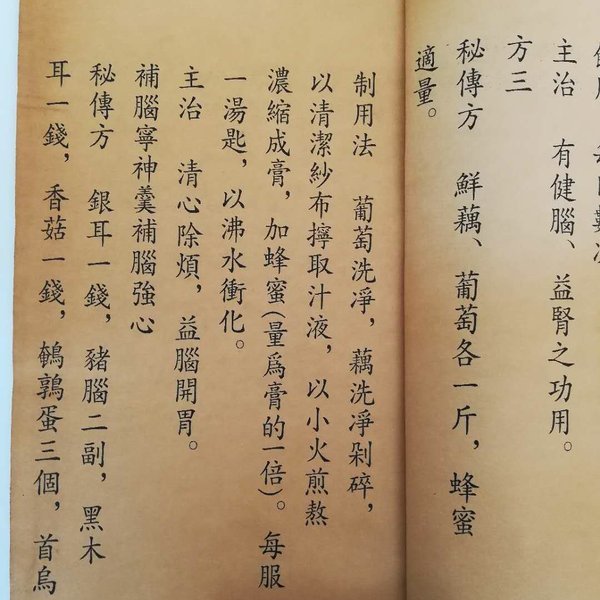 主治　有健腦、益腎之功用。
方三
秘傳方　鮮藕、葡萄各一斤，蜂蜜
適量。
制用法　葡萄洗淨，藕洗凈剁碎，
以清潔紗布擰取汁液，以小火煎熬
濃縮成膏，加蜂蜜(量爲膏的一倍)。每服
一湯匙，以沸水衝化。
主治　清心除煩，益腦開胃。
補腦寧神羹補腦強心
秘傳方　銀耳一錢，豬腦二副，黑木
耳一錢，香菇一錢，鵪鶉蛋三個，首烏